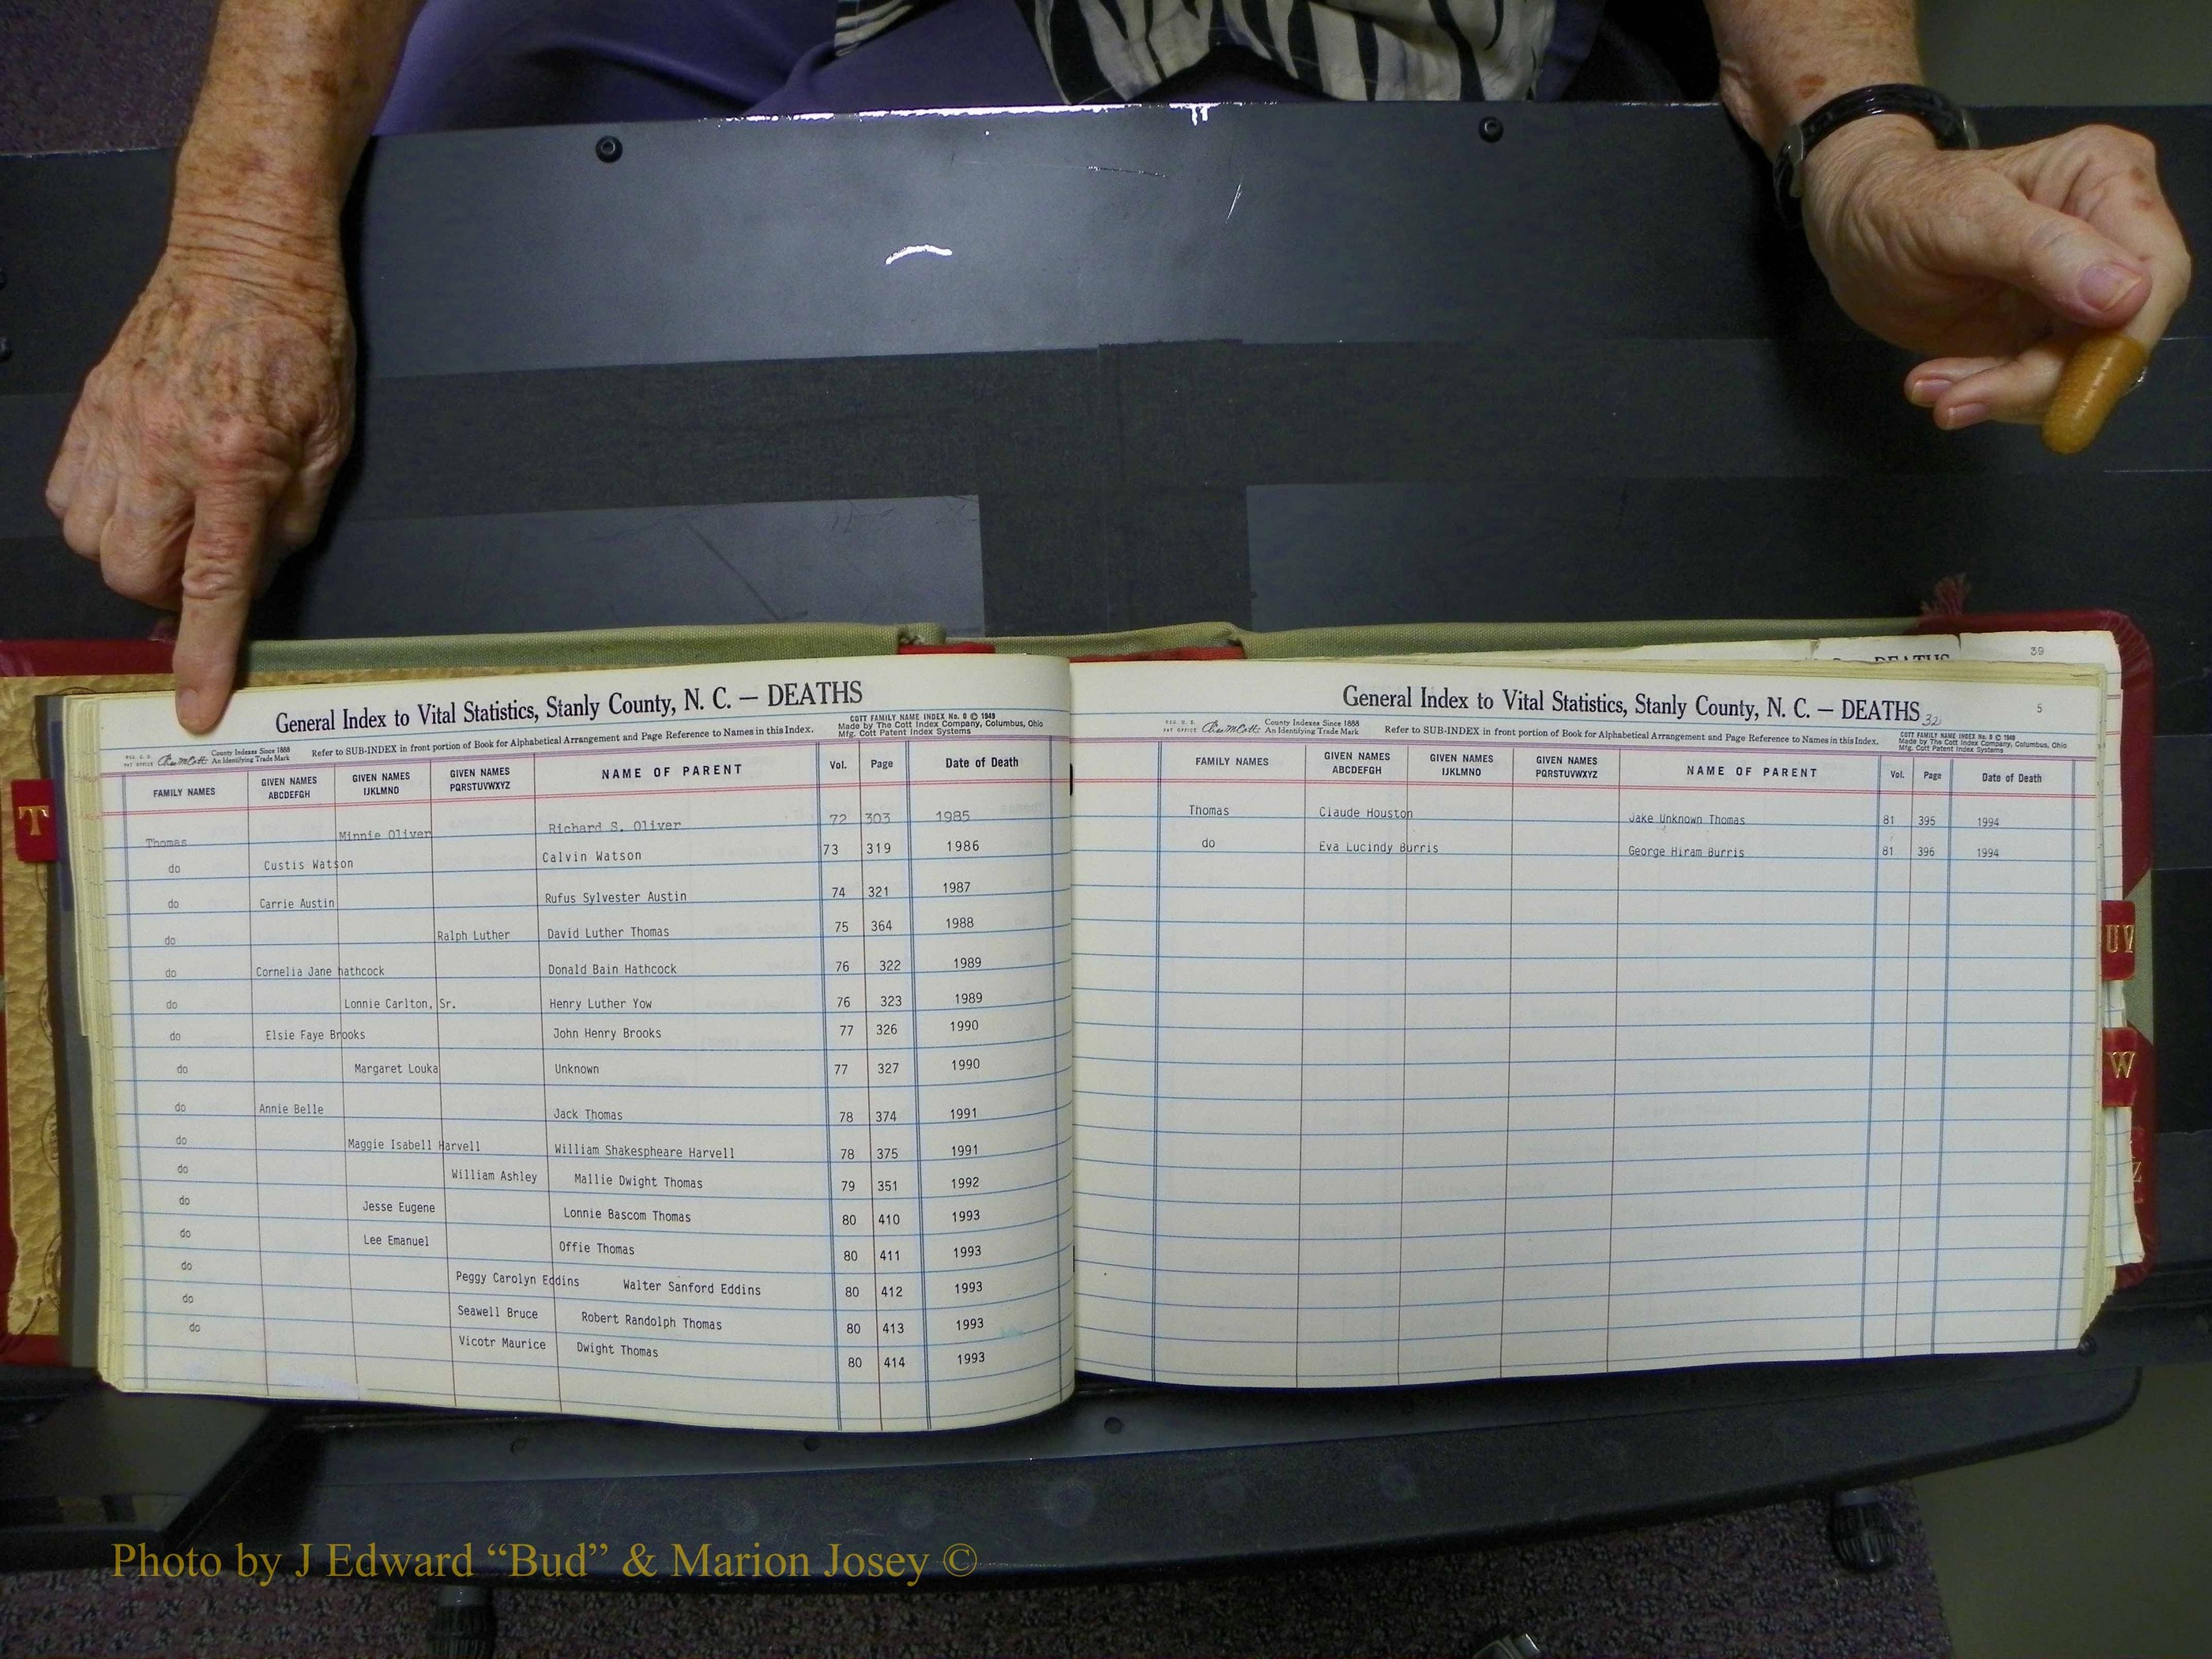 General Index to Vital Statistics, Stanly County, N. C. — DEATHS
REG. U. S. PAT OFFICE County Indexes Since 1888 An Identifying Trade Mark
Refer to SUB-INDEX in front portion of Book for Alphabetical Arrangement and Page Reference to Names in this Index.
COTT FAMILY NAME INDEX No. 8 © 1949
Made by The Cott Index Company, Columbus, Ohio
Mfg. Cott Patent Index Systems
FAMILY NAMES GIVEN NAMES ABCDEFGH GIVEN NAMES IJKLMNO GIVEN NAMES PQRSTUVWXYZ NAME OF PARENT Vol. Page Date of Death
Thomas Minnie Oliver Richard S. Oliver 72 303 1985
do Custis Watson Calvin Watson 73 319 1986
do Carrie Austin Rufus Sylvester Austin 74 321 1987
do Ralph Luther David Luther Thomas 75 364 1988
do Cornelia Jane hathcock Donald Bain Hathcock 76 322 1989
do Lonnie Carlton, Sr. Henry Luther Yow 76 323 1989
do Elsie Faye Brooks John Henry Brooks 77 326 1990
do Margaret Louka Unknown 77 327 1990
do Annie Belle Jack Thomas 78 374 1991
do Maggie Isabell Harvell William Shakespheare Harvell 78 375 1991
do William Ashley Mallie Dwight Thomas 79 351 1992
do Jesse Eugene Lonnie Bascom Thomas 80 410 1993
do Lee Emanuel Offie Thomas 80 411 1993
do Peggy Carolyn Eddins Walter Sanford Eddins 80 412 1993
do Seawell Bruce Robert Randolph Thomas 80 413 1993
do Vicotr Maurice Dwight Thomas 80 414 1993
T
DEATHS
39
General Index to Vital Statistics, Stanly County, N. C. — DEATHS 32 5
REG. U. S. PAT OFFICE County Indexes Since 1888 An Identifying Trade Mark
Refer to SUB-INDEX in front portion of Book for Alphabetical Arrangement and Page Reference to Names in this Index.
COTT FAMILY NAME INDEX No. 8 © 1949
Made by The Cott Index Company, Columbus, Ohio
Mfg. Cott Patent Index Systems
FAMILY NAMES GIVEN NAMES ABCDEFGH GIVEN NAMES IJKLMNO GIVEN NAMES PQRSTUVWXYZ NAME OF PARENT Vol. Page Date of Death
Thomas Claude Houston Jake Unknown Thomas 81 395 1994
do Eva Lucindy Burris George Hiram Burris 81 396 1994
UV
W
Z
Photo by J Edward “Bud” & Marion Josey ©